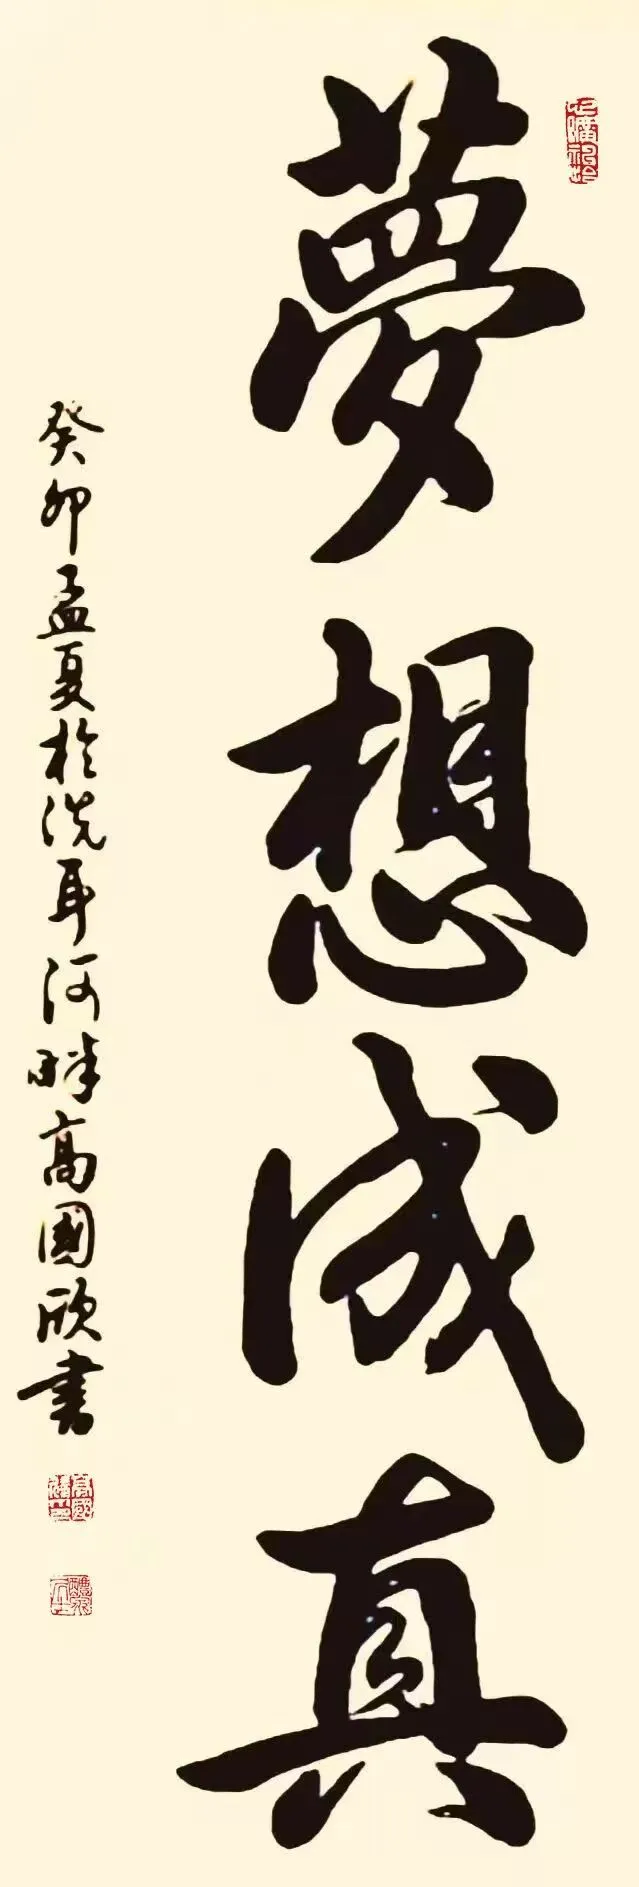 夢想成真
癸卯孟夏於洗耳河畔高國欣書